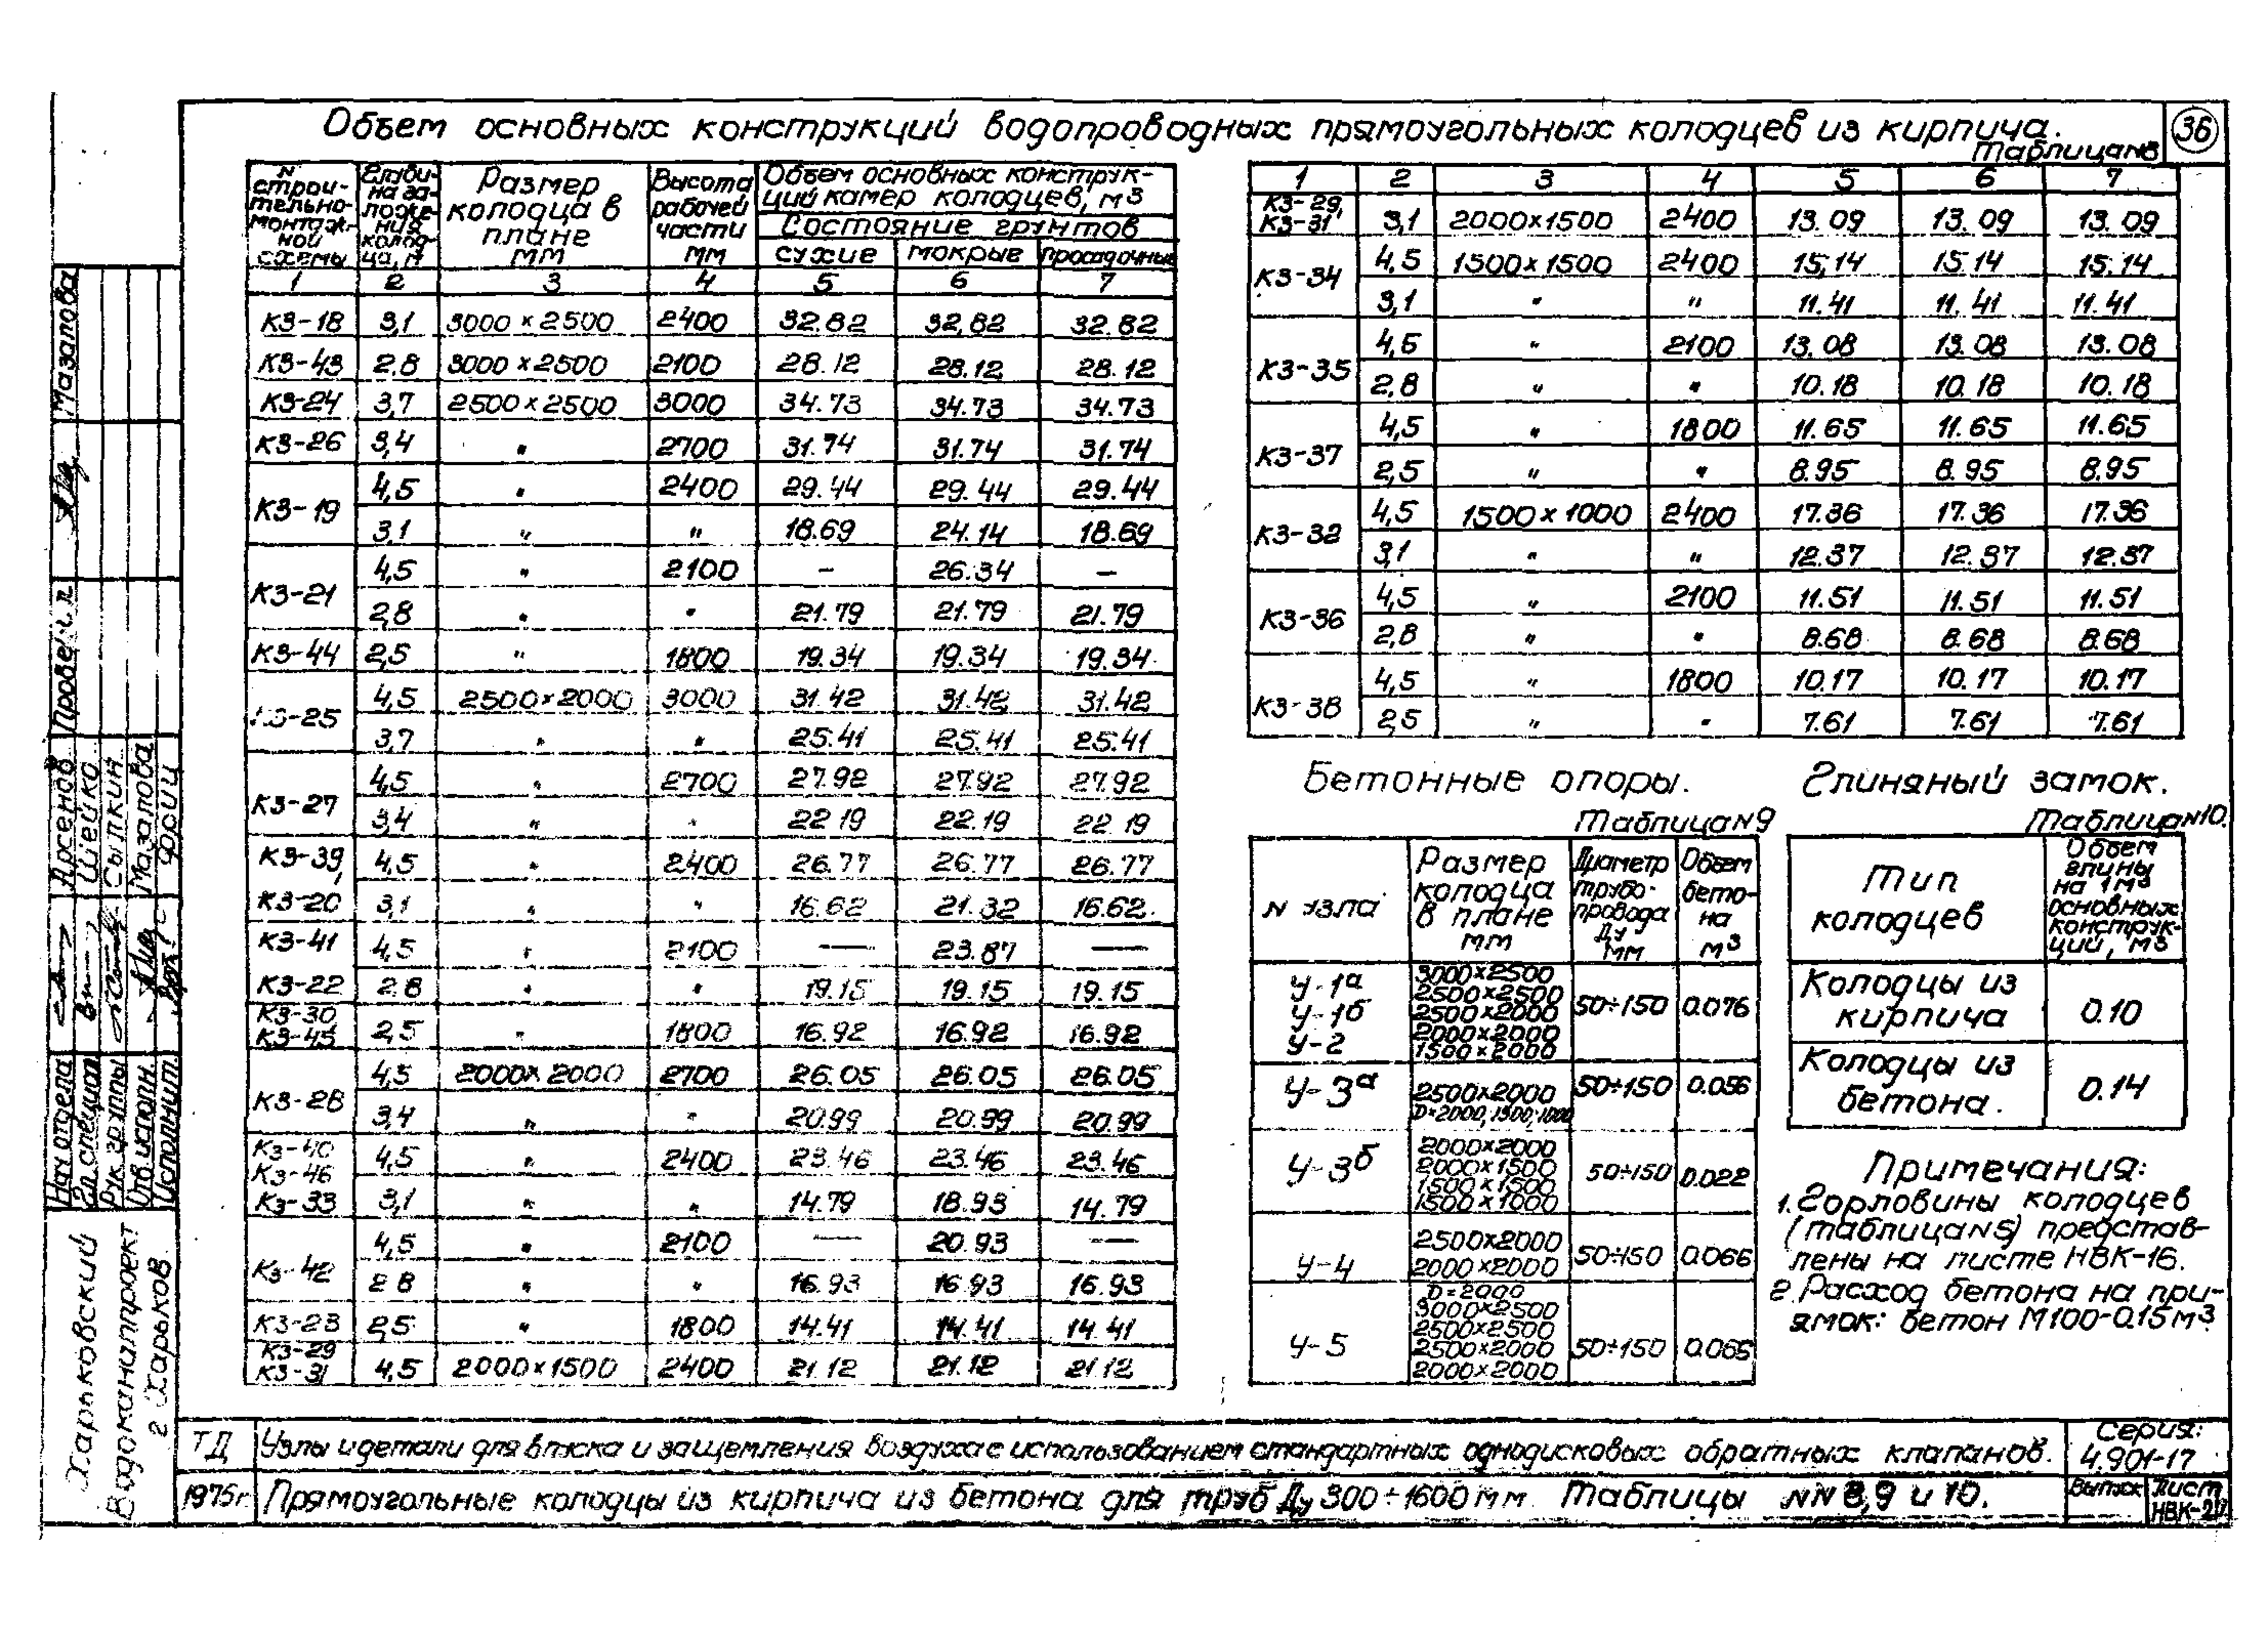 Объем основных конструкций водопроводных прямоугольных колодцев из кирпича.
36
Таблица №8
N строительно-монтажной схемы | Глубина заложения колодца, м | Размер колодца в плане мм | Высота рабочей части мм | Объем основных конструкций камер колодцев, м3
Состояние грунтов
сухие | мокрые | просадочные
1 2 3 4 5 6 7
КЗ-18 3,1 3000×2500 2400 32.82 32,82 32.82
КЗ-43 2.8 3000×2500 2100 28.12 28.12 28.12
КЗ-24 3,7 2500×2500 3000 34.73 34.73 34.73
КЗ-26 3,4 " 2700 31.74 31.74 31.74
КЗ-19 4,5 " 2400 29.44 29.44 29.44
3,1 " " 18.69 24.14 18.69
КЗ-21 4,5 " 2100 — 26.34 —
2,8 " " 21.79 21.79 21.79
КЗ-44 2,5 " 1800 19.34 19.34 19.34
КЗ-25 4,5 2500×2000 3000 31.42 31.42 31.42
3,7 " " 25.41 25.41 25.41
КЗ-27 4,5 " 2700 27.92 27.92 27.92
3,4 " " 22 19 22.19 22.19
КЗ-39, 4,5 " 2400 26.77 26.77 26.77
КЗ-20 3,1 " " 16.62 21.32 16.62
КЗ-41 4,5 " 2100 — 23.87 —
КЗ-22 2.8 " " 19.15 19.15 19.15
КЗ-30 КЗ-45 2,5 " 1800 16.92 16.92 16.92
КЗ-28 4,5 2000×2000 2700 26.05 26.05 26.05
3,4 " " 20.99 20.99 20.99
КЗ-40 КЗ-46 4,5 " 2400 23.46 23.46 23.46
КЗ-33 3,1 " " 14.79 18.93 14.79
КЗ-42 4,5 " 2100 — 20.93 —
2 8 " " 16.93 16.93 16.93
КЗ-23 2,5 " 1800 14.41 14.41 14.41
КЗ-29 КЗ-31 4,5 2000×1500 2400 21.12 21.12 21.12
1 2 3 4 5 6 7
КЗ-29, КЗ-31 3,1 2000×1500 2400 13.09 13.09 13.09
КЗ-34 4,5 1500×1500 2400 15,14 15.14 15.14
3,1 " " 11.41 11.41 11.41
КЗ-35 4,5 " 2100 13.08 13.08 13.08
2,8 " " 10.18 10.18 10.18
КЗ-37 4,5 " 1800 11.65 11.65 11.65
2,5 " " 8.95 8.95 8.95
КЗ-32 4,5 1500×1000 2400 17.36 17.36 17.36
3,1 " " 12.37 12.37 12.37
КЗ-36 4,5 " 2100 11.51 11.51 11.51
2,8 " " 8.68 8.68 8.68
КЗ-38 4,5 " 1800 10.17 10.17 10.17
2,5 " " 7.61 7.61 7.61
Бетонные опоры.
Таблица №9
N узла | Размер колодца в плане мм | Диаметр трубопровода Ду мм | Объем бетона м3
У-1а У-1б У-2 | 3000×2500 2500×2500 2500×2000 2000×2000 1500×2000 | 50÷150 | 0.076
У-3а | 2500×2000 D=2000, 1500, 1000 | 50÷150 | 0.056
У-3б | 2000×2000 2000×1500 1500×1500 1500×1000 | 50÷150 | 0.022
У-4 | 2500×2000 2000×2000 | 50÷150 | 0.066
У-5 | D=2000 3000×2500 2500×2500 2500×2000 2000×2000 | 50÷150 | 0.065
Глиняный замок.
Таблица №10.
Тип колодцев | Объем глины на 1м3 основных конструкций, м3
Колодцы из кирпича 0.10
Колодцы из бетона. 0.14
Примечания:
1. Горловины колодцев
(таблица №5) представ-
лены на листе НВК-16.
2. Расход бетона на при-
ямок: бетон М100-0.15м3
ТД
Узлы и детали для впуска и защемления воздуха с использованием стандартных однодисковых обратных клапанов.
Серия:
4.901-17
1975г.
Прямоугольные колодцы из кирпича из бетона для труб Ду 300÷1600мм. Таблицы NN 8,9 и 10.
Выпуск
Лист
Харьковский
Водоканалпроект
г. Харьков
Нач отдела Арсенов
Гл. специал Шейко
Рук. группы Сыпкин
Отв. исполн. Мазалова
Исполнит.
Мазалова